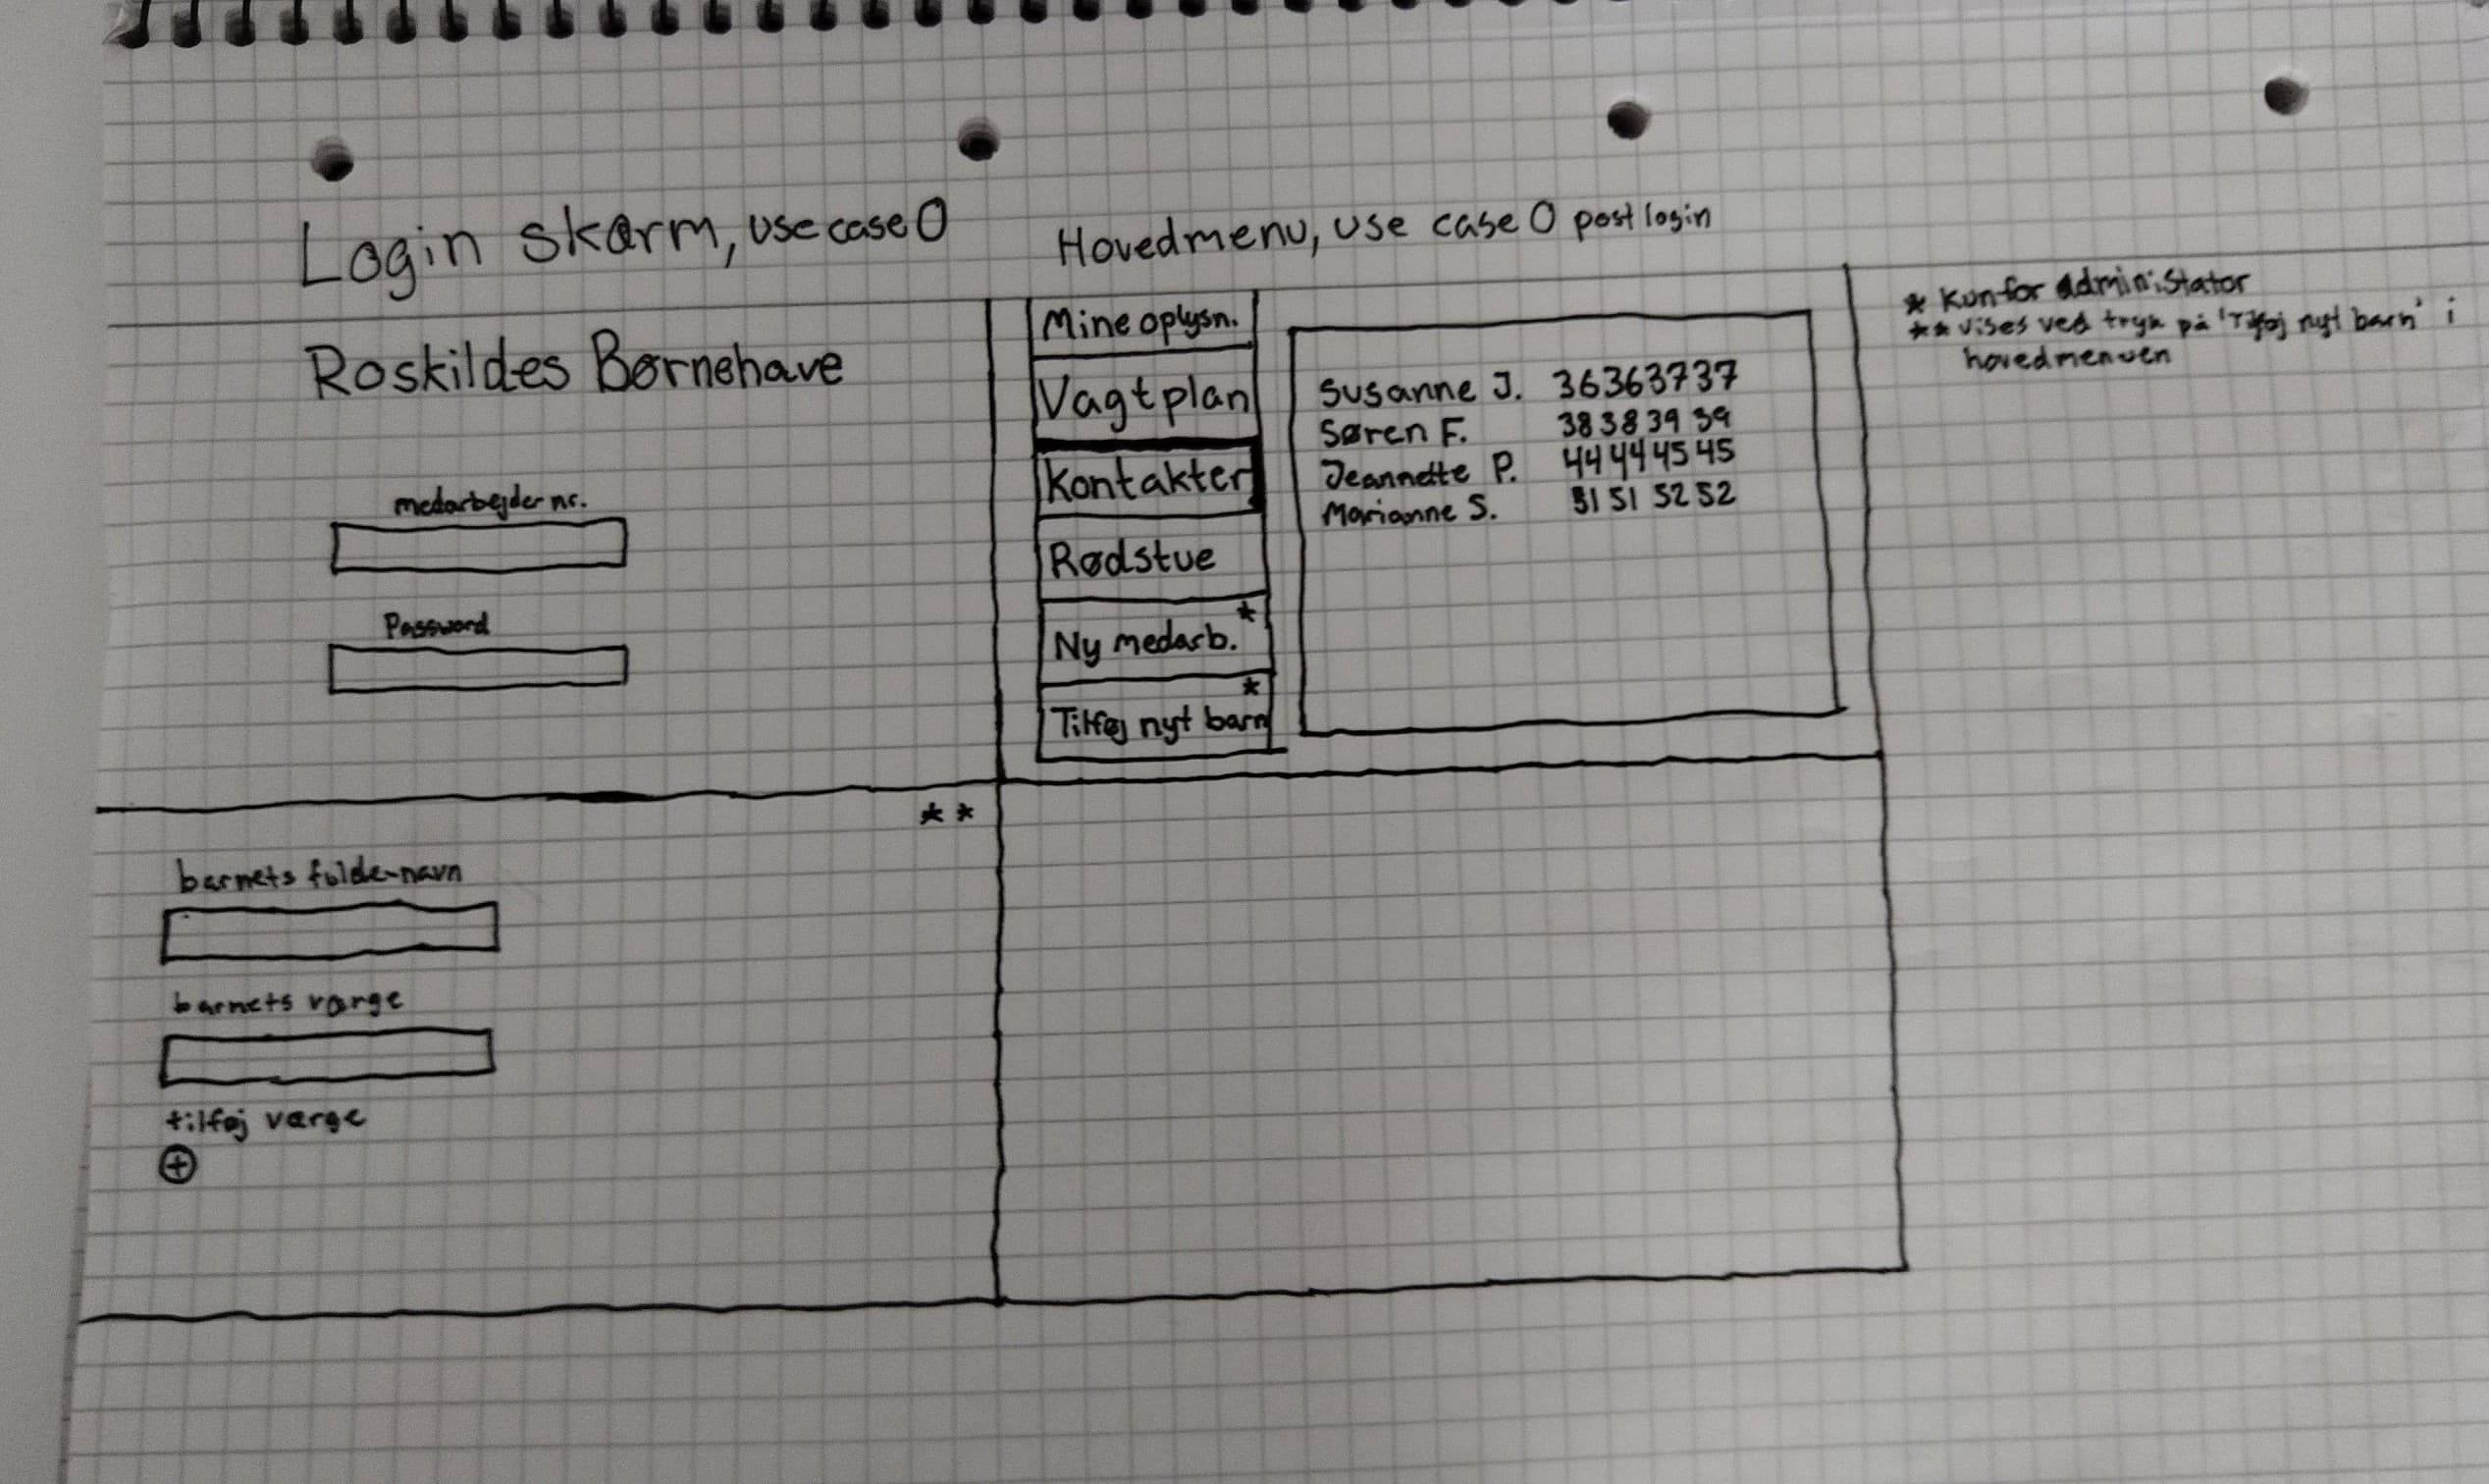 Login skærm, use case 0
Roskildes Børnehave
medarbejder nr.
Password
Hovedmenu, use case 0 post login
Mine oplysn.
Vagtplan
Kontakter
Rødstue
Ny medarb. *
Tilføj nyt barn *
Susanne J. 36363737
Søren F. 38 38 39 39
Jeannette P. 44 44 45 45
Marianne S. 51 51 52 52
* Kun for administator
** vises ved tryk på 'Tilføj nyt barn' i
hovedmenuen
**
barnets fulde-navn
barnets værge
tilføj værge
+